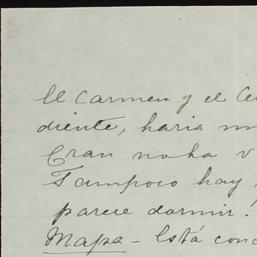 El Carmen y el Ce
diente, haria m
Gran naba v
Tampoco hay
parece dormir.
Mapa - Está con